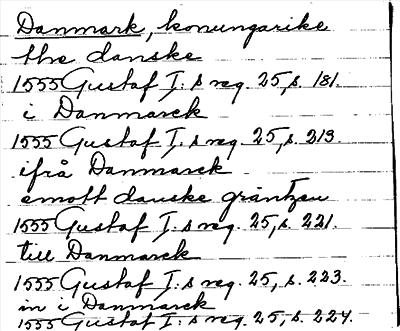 Danmark, konungarike
the danske
1555 Gustaf I:s reg. 25, s. 181.
i Danmarck
1555 Gustaf I:s reg. 25, s. 213.
ifrå Danmarck
emott danske gräntzen
1555 Gustaf I:s reg. 25, s. 221.
till Danmarck
1555 Gustaf I:s reg. 25, s. 223.
in i Danmarck
1555 Gustaf I:s reg. 25, s. 224.